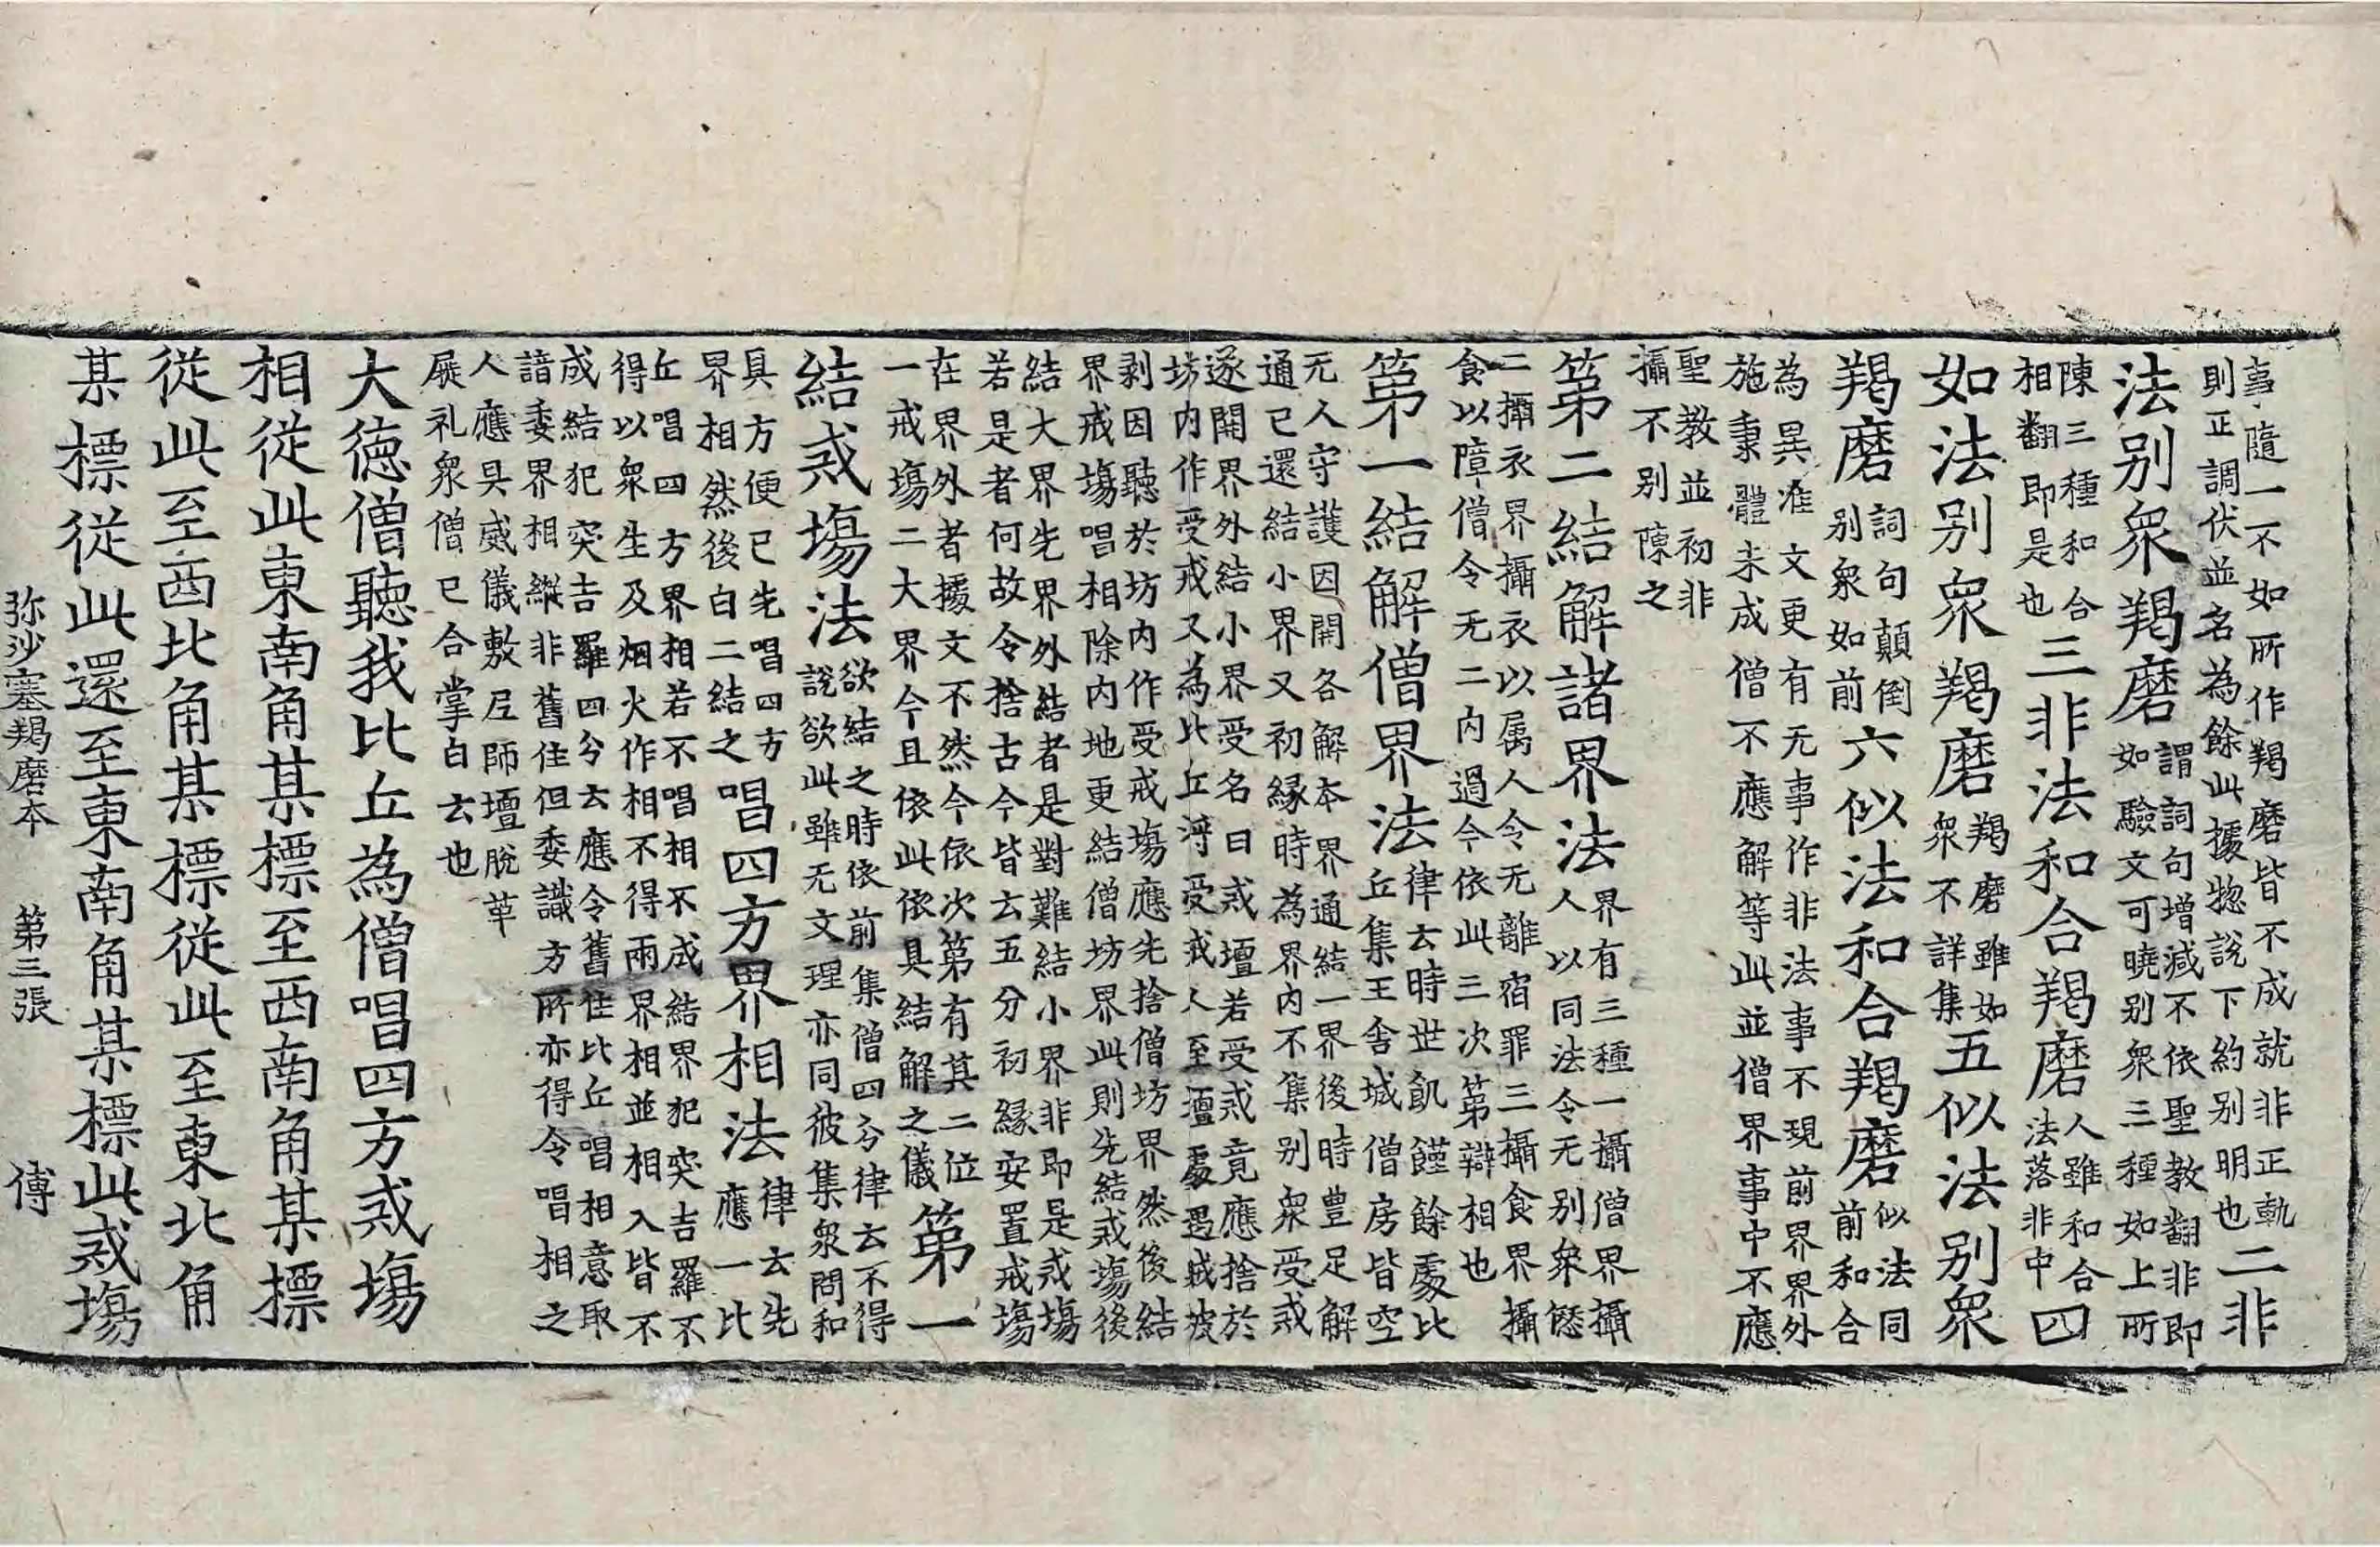 事隨一不如所作羯磨皆不成就非正軌
則正調伏並名為餘此據惣說下約别明也
二非
法别衆羯磨
謂詞句增減不依聖教翻非即
如驗文可曉别衆三種如上所
陳三種和合
相翻即是也
三非法和合羯磨
人雖和合
法落非中
四
如法别衆羯磨
羯磨雖如
衆不詳集
五似法别衆
羯磨
詞句顛倒
别衆如前
六似法和合羯磨
似法同
前和合
為異准文更有无事作非法事不現前界界外
施秉體未成僧不應解等此並僧界事中不應
聖教並初非
攝不别陳之
第二結解諸界法
界有三種一攝僧界攝
人以同法令无别衆愆
二攝衣界攝衣以属人令无離宿罪三攝食界攝
食以障僧令无二内過今依此三次第辯相也
第一結解僧界法
律云時世飢饉餘處比
丘集王舍城僧房皆空
无人守護因開各解本界通結一界後時豊足解
通已還結小界又初縁時為界内不集别衆受戒
遂開界外結小界受名曰戒壇若受戒竟應捨於
坊内作受戒又為比丘將受戒人至壇處遇賊被
剥因聽於坊内作受戒塲應先捨僧坊界然後結
界戒塲唱相除内地更結僧坊界此則先結戒塲後
結大界先界外結者是對難結小界非即是戒塲
若是者何故令捨古今皆云五分初縁安置戒塲
在界外者據文不然今依次第有其二位
一戒塲二大界今且依此依具結解之儀
第一
結戒塲法
欲結之時依前集僧四分律云不得
說欲此雖无文理亦同彼集衆問和
具方便已先唱四方
界相然後白二結之
唱四方界相法
律云先
應一比
丘唱四方界相若不唱相不成結界犯突吉羅不
得以衆生及烟火作相不得兩界相並相入皆不
成結犯突吉羅四分云應令舊住比丘唱相意取
諳委界相縱非舊住但委識方所亦得令唱相之
人應具威儀敷尼師壇脫革
屣礼衆僧已合掌白云也
大德僧聽我比丘為僧唱四方戒塲
相從此東南角某標至西南角某標
從此至西北角某標從此至東北角
某標從此還至東南角某標此戒塲
弥沙塞羯磨本 第三張 傳